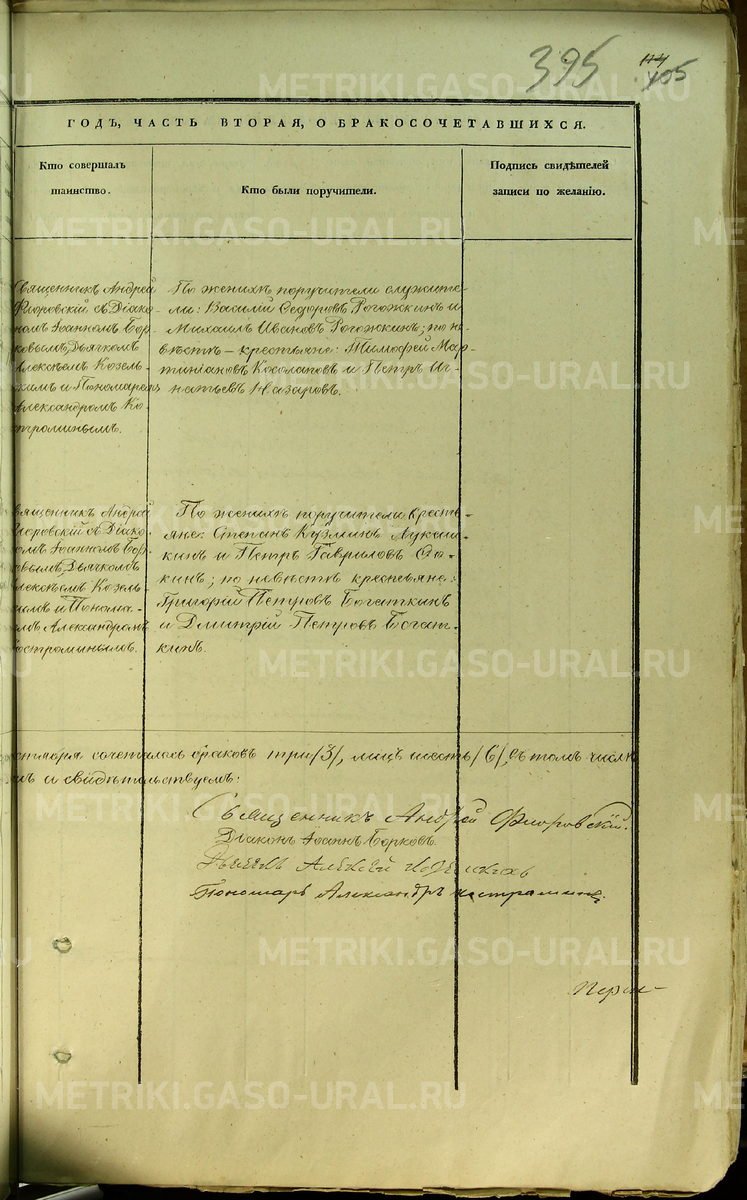 395
114
105
ГОДЪ, ЧАСТЬ ВТОРАЯ, О БРАКОСОЧЕТАВШИХСЯ.
Кто совершалъ
таинство.
Кто были поручители.
Подпись свидѣтелей
записи по желанію.
Священникъ Андрей
Флоровскій съ Діако-
номъ Іоанномъ Бор-
ковымъ, Дьячкомъ
Алексѣемъ Козель-
скимъ и Пономаремъ
Александромъ Ко-
строминымъ.
По женихѣ поручители служите-
ли: Василій Ѳедоровъ Рогожкинъ и
Михаилъ Ивановъ Рогожкинъ; по не
вѣстѣ – крестьяне: Тимофей Мар-
тиніановъ Косолаповъ и Петръ Иг-
натьевъ Назаровъ.
вященникъ Андрей
лоровскій съ Діако-
омъ Іоанномъ Бор-
овымъ, Дьячкомъ
лексѣемъ Козель-
и Понома-
емъ Александромъ
остроминымъ.
По женихѣ поручители кресть-
яне: Степанъ Кузминъ Лукаш-
кинъ и Петръ Гавриловъ
кинъ; по невѣстѣ крестьяне:
Григорій Петровъ Богаткинъ
и Дмитрій Петровъ Богат-
кинъ.
сочеталось браковъ три /3/, лицъ шесть /6/, въ томъ числѣ
и свидѣтельствуемъ:
Священникъ Андрей Флоровскій.
Діаконъ Іоаннъ Борковъ.
Дьячекъ Алексей Козельскихъ
Пономарь Александръ Костроминъ.
METRIKI.GASO-URAL.RU